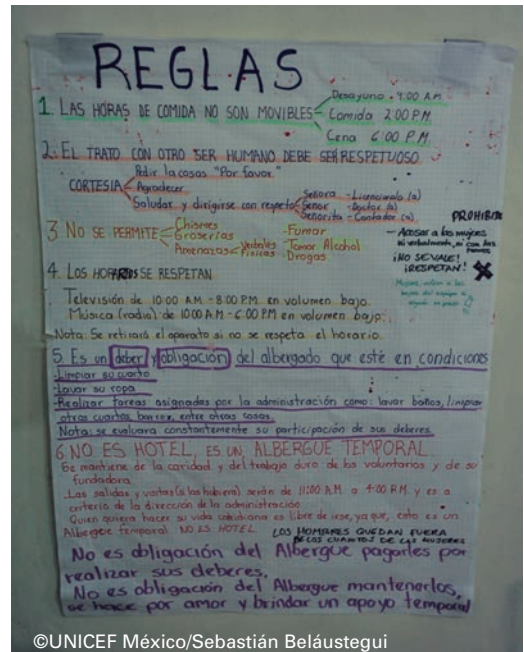 REGLAS
1. LAS HORAS DE COMIDA NO SON MOVIBLES
Desayuno - 9:00 A.M.
Comida 2:00 P.M.
Cena 6:00 P.M.
2. EL TRATO CON OTRO SER HUMANO DEBE SER RESPETUOSO
CORTESIA
Pedir la cosas "Por favor"
Agradecer
Saludar y dirigirse con respeto
Señora - Licenciado (a)
Señor - Doctor (a)
Señorita - Contador (a)
3 NO SE PERMITE
Chismes
Groserias
Amenazas
Verbales
Fisicas
-Fumar
-Tomar Alcohol
-Drogas
PROHIBIDO
- Acosar a las mujeres
ni verbalmente, ni con las
¡NO SE VALE!
¡RESPETAN!
4. LOS HORARIOS SE RESPETAN
Televisión de 10:00 A.M. - 8:00 P.M. en volumen bajo.
Música (radio) de 10:00 A.M - 6:00 P.M en volumen bajo.
Nota: Se retirará el aparato si no se respeta el horario.
5. Es un deber y obligación del albergado que esté en condiciones
-Limpiar su cuarto
-Lavar su ropa
-Realizar tareas asignadas por la administración como: lavar baños, limpiar
otros cuartos, barrer, entre otras cosas.
Nota: se evaluara constantemente su participación de sus deberes
6. NO ES HOTEL, ES UN ALBERGUE TEMPORAL.
Se mantiene de la caridad y del trabajo duro de los voluntarios y de su
fundadora
Las salidas y visitas (si las hubiera) serán de 11:00 A.M. a 4:00 P.M. y es a
criterio de la dirección de la administración
Quien quiera hacer su vida cotidiana es libre de irse, ya que, esto es un
Albergue temporal NO ES HOTEL
LOS HOMBRES QUEDAN FUERA
DE LOS CUARTOS DE LAS MUJERES
No es obligación del Albergue pagarles por
realizar sus deberes.
No es obligación del Albergue mantenerlos,
se hace por amor y brindar un apoyo temporal
©UNICEF México/Sebastián Beláustegui